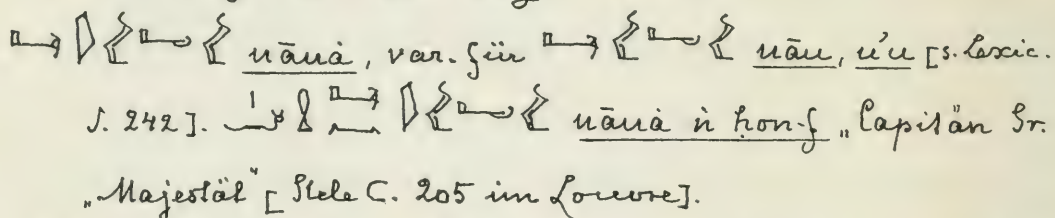 uāuȧ, var. für uāu, u'u [s. Lexic.
S. 242]. uāuȧ ṅ hon-f „Capitän Sr.
„Majestät" [Stele C. 205 im Louvre].